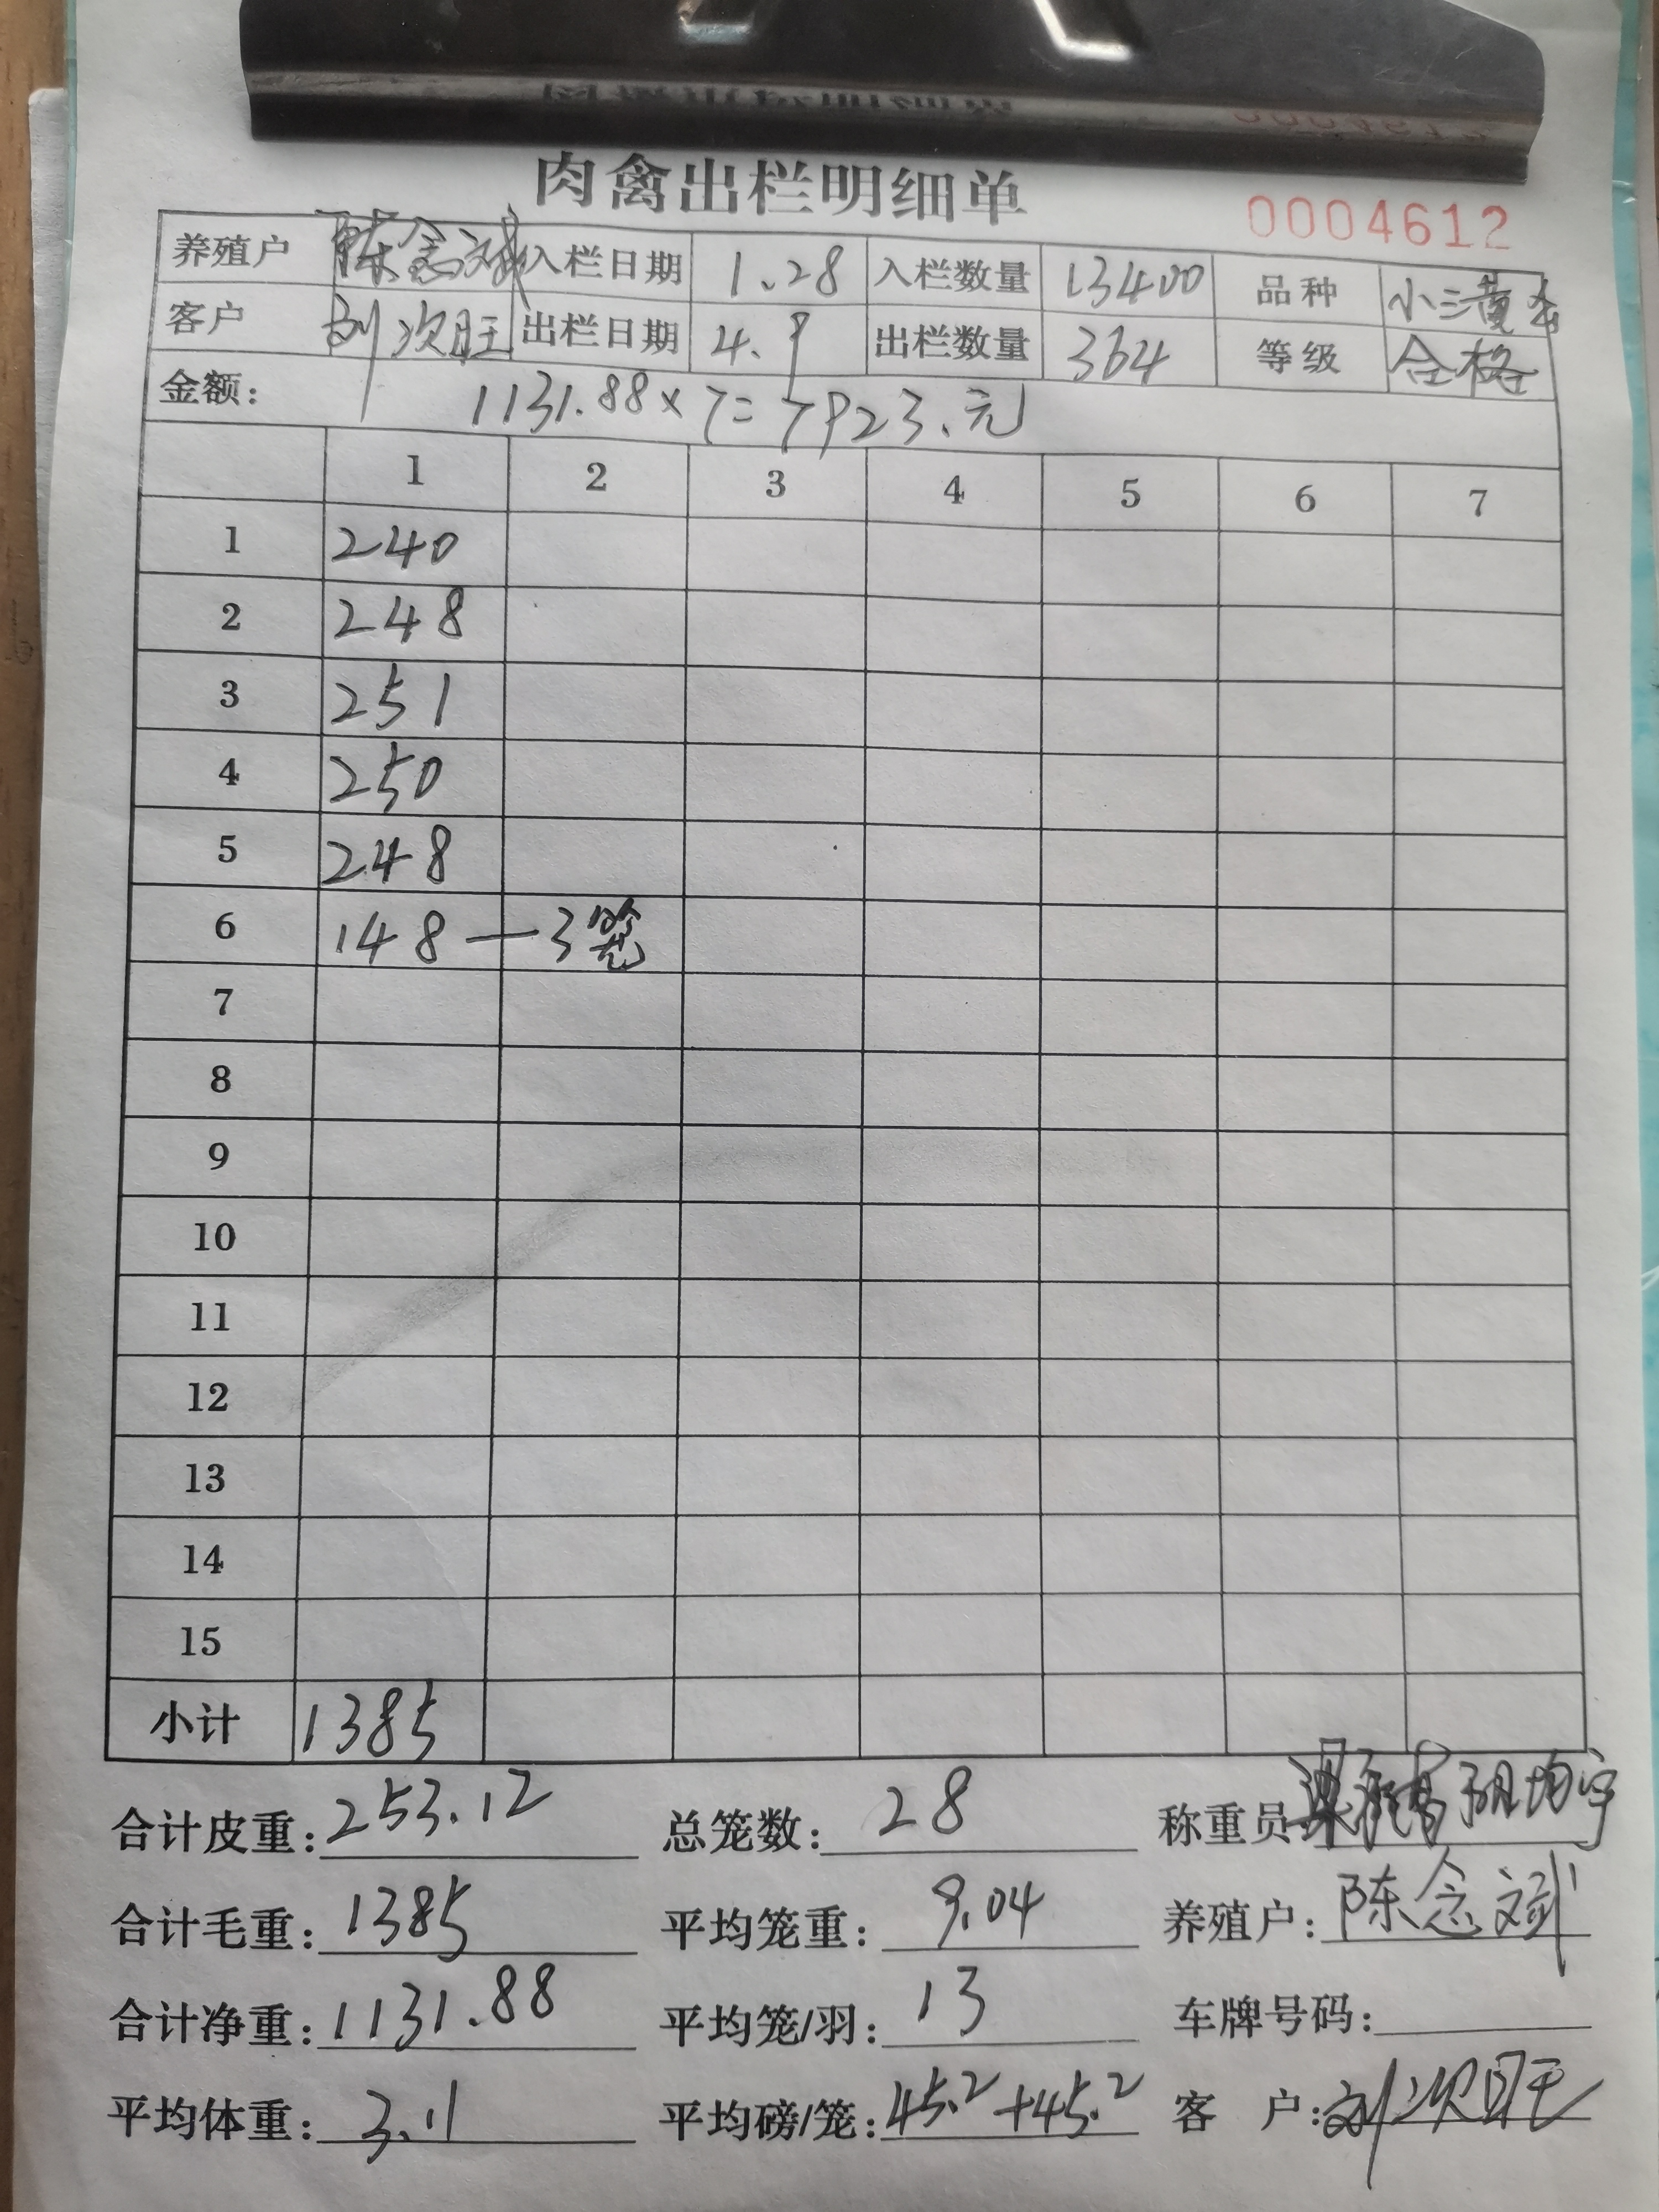 肉禽出栏明细单
0004612
养殖户 陈念斌 入栏日期 1.28 入栏数量 13400 品种 小三黄
客户 刘次旺 出栏日期 4.9 出栏数量 364 等级 合格
金额: 1131.88×7=7923.元
1 2 3 4 5 6 7
1 240
2 248
3 251
4 250
5 248
6 148 — 3笼
7
8
9
10
11
12
13
14
15
小计 1385
合计皮重: 253.12 总笼数: 28 称重员
合计毛重: 1385 平均笼重: 9.04 养殖户: 陈念斌
合计净重: 1131.88 平均笼/羽: 13 车牌号码:
平均体重: 3.11 平均磅/笼: 45.2+45.2 客 户: 刘次旺